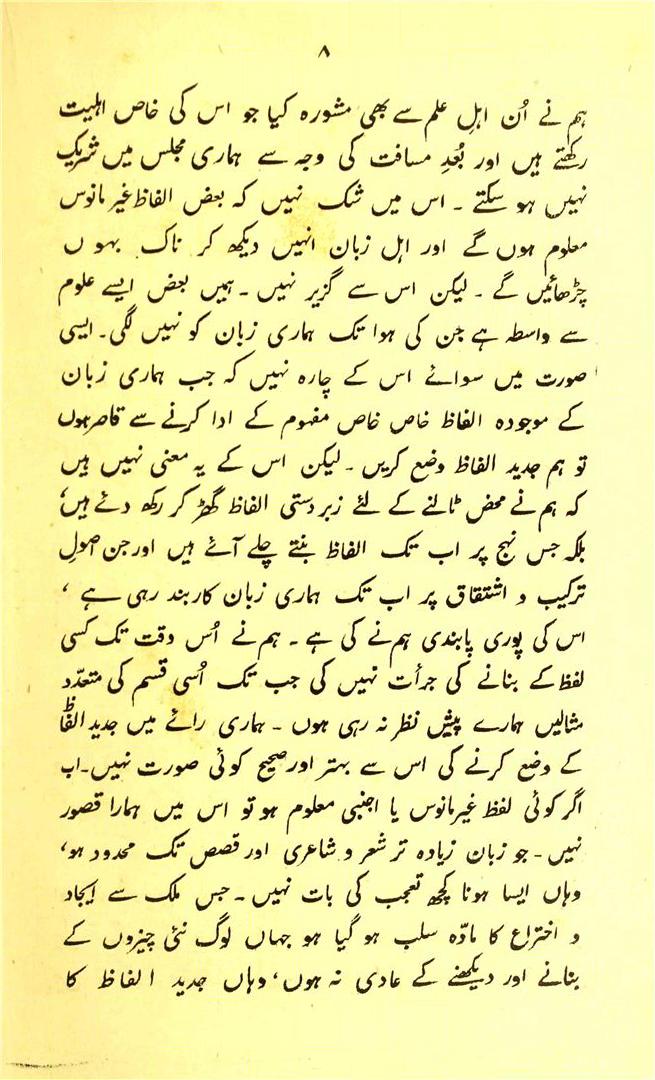 ۸
ہم نے اُن اہلِ علم سے بھی مشورہ کیا جو اس کی خاص اہلیت
رکھتے ہیں اور بُعدِ مسافت کی وجہ سے ہماری مجلس میں شریک
نہیں ہو سکتے ۔ اس میں شک نہیں کہ بعض الفاظ غیر مانوس
معلوم ہوں گے اور اہل زبان انہیں دیکھ کر ناک بہو ں
چڑھائیں گے ۔ لیکن اس سے گزیر نہیں ۔ ہمیں بعض ایسے علوم
سے واسطہ ہے جن کی ہوا تک ہماری زبان کو نہیں لگی ۔ ایسی
صورت میں سوائے اس کے چارہ نہیں کہ جب ہماری زبان
کے موجودہ الفاظ خاص خاص مفہوم کے ادا کرنے سے قاصر ہوں
تو ہم جدید الفاظ وضع کریں ۔ لیکن اس کے یہ معنی نہیں ہیں
کہ ہم نے محض ٹالنے کے لئے زبردستی الفاظ گھڑ کر رکھ دئے ہیں،
بلکہ جس نہج پر اب تک الفاظ بنتے چلے آئے ہیں اور جن اصولِ
ترکیب و اشتقاق پر اب تک ہماری زبان کاربند رہی ہے ،
اس کی پوری پابندی ہم نے کی ہے ۔ ہم نے اُس وقت تک کسی
لفظ کے بنانے کی جرأت نہیں کی جب تک اُسی قسم کی متعدّد
مثالیں ہمارے پیش نظر نہ رہی ہوں ۔ ہماری رائے میں جدید الفاظ
کے وضع کرنے کی اس سے بہتر اور صحیح کوئی صورت نہیں ۔ اب
اگر کوئی لفظ غیر مانوس یا اجنبی معلوم ہو تو اس میں ہمارا قصور
نہیں ۔ جو زبان زیادہ تر شعر و شاعری اور قصص تک محدود ہو،
وہاں ایسا ہونا کچھ تعجب کی بات نہیں ۔ جس ملک سے ایجاد
و اختراع کا مادّہ سلب ہو گیا ہو جہاں لوگ نئی چیزوں کے
بنانے اور دیکھنے کے عادی نہ ہوں، وہاں جدید الفاظ کا